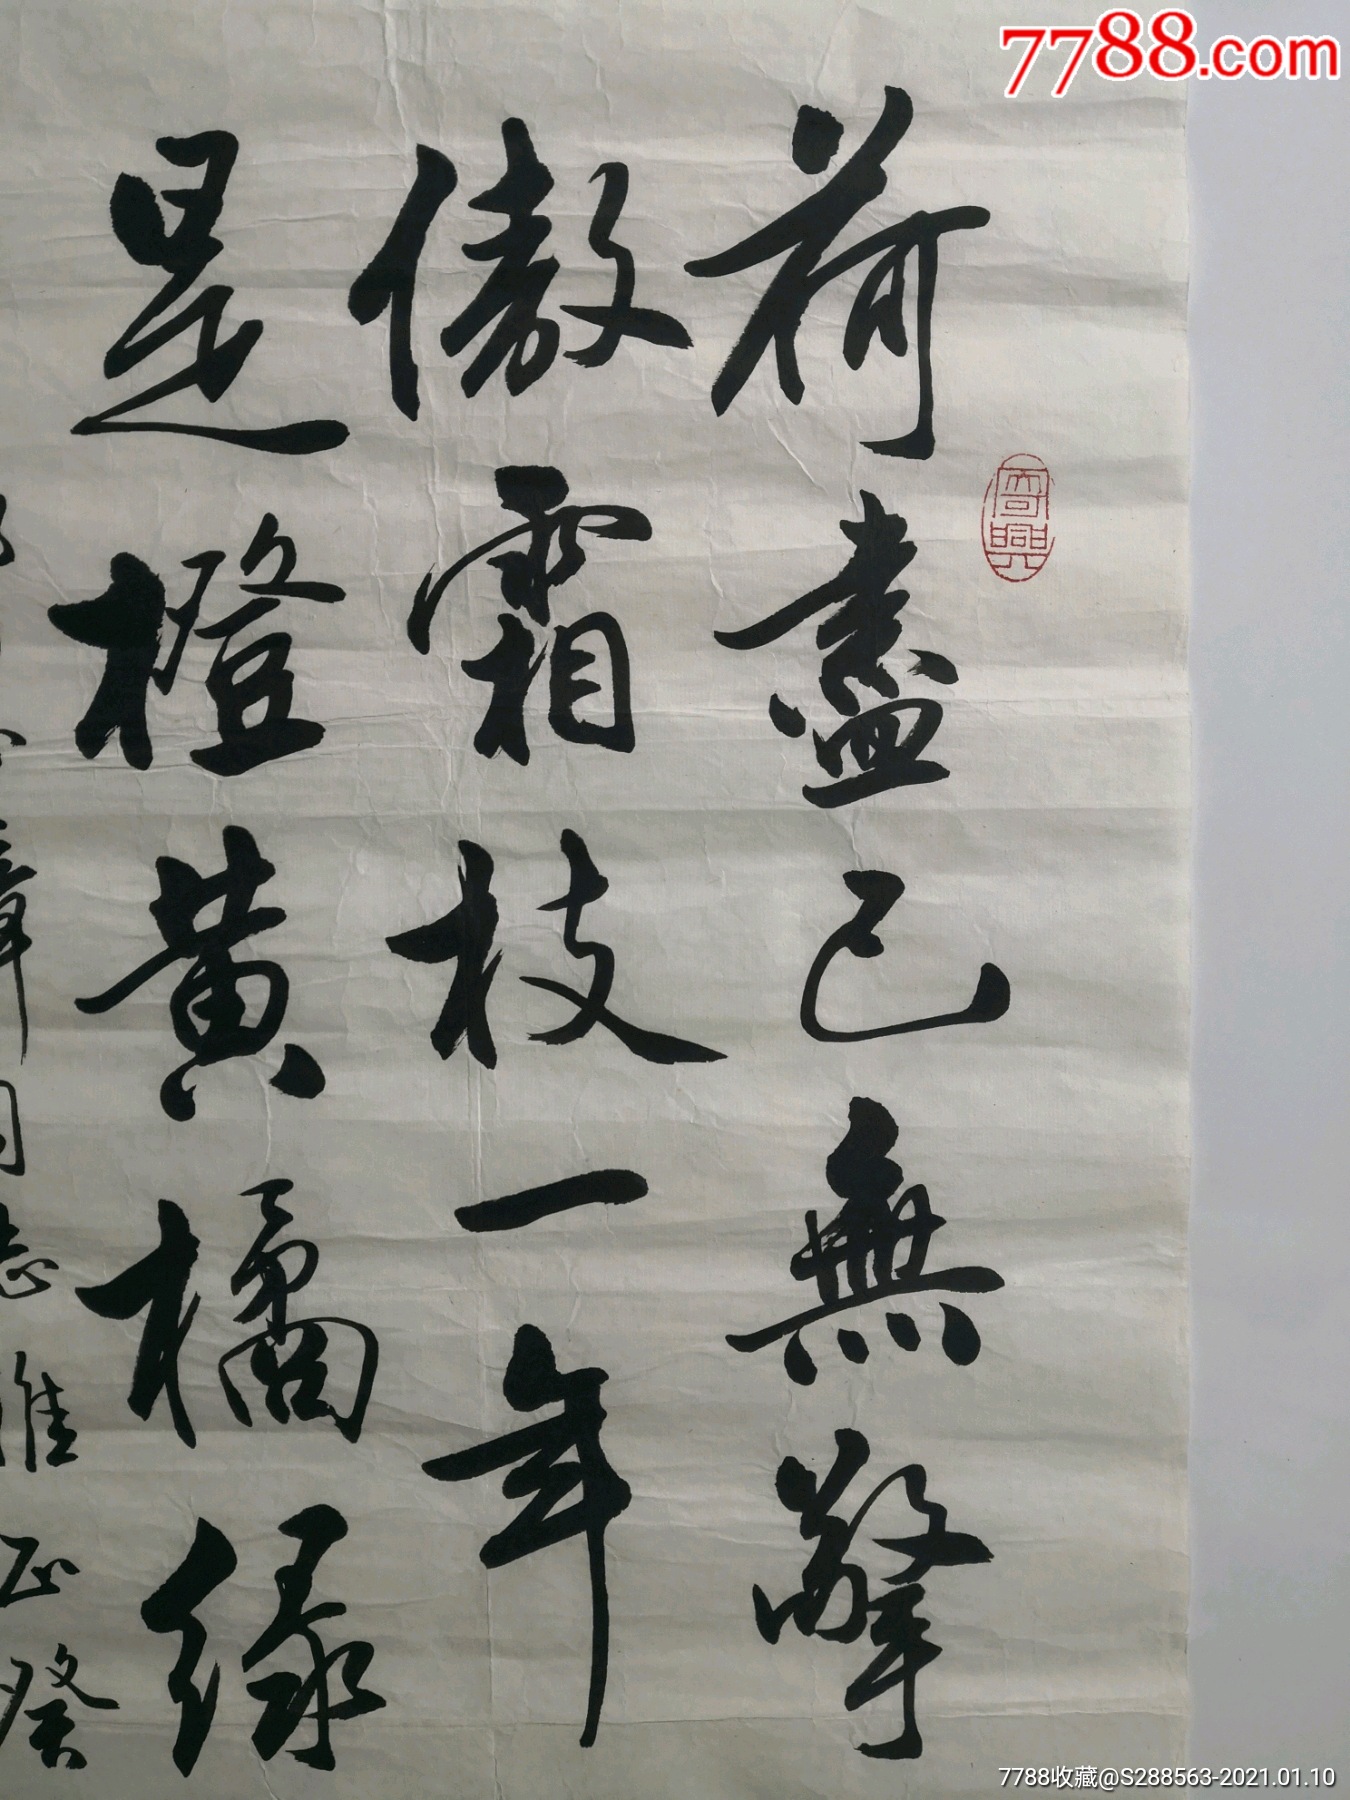 7788.com
荷盡已無擎
傲霜枝一年
是橙黄橘緑
章同志雅正癸
7788收藏@S288563-2021.01.10